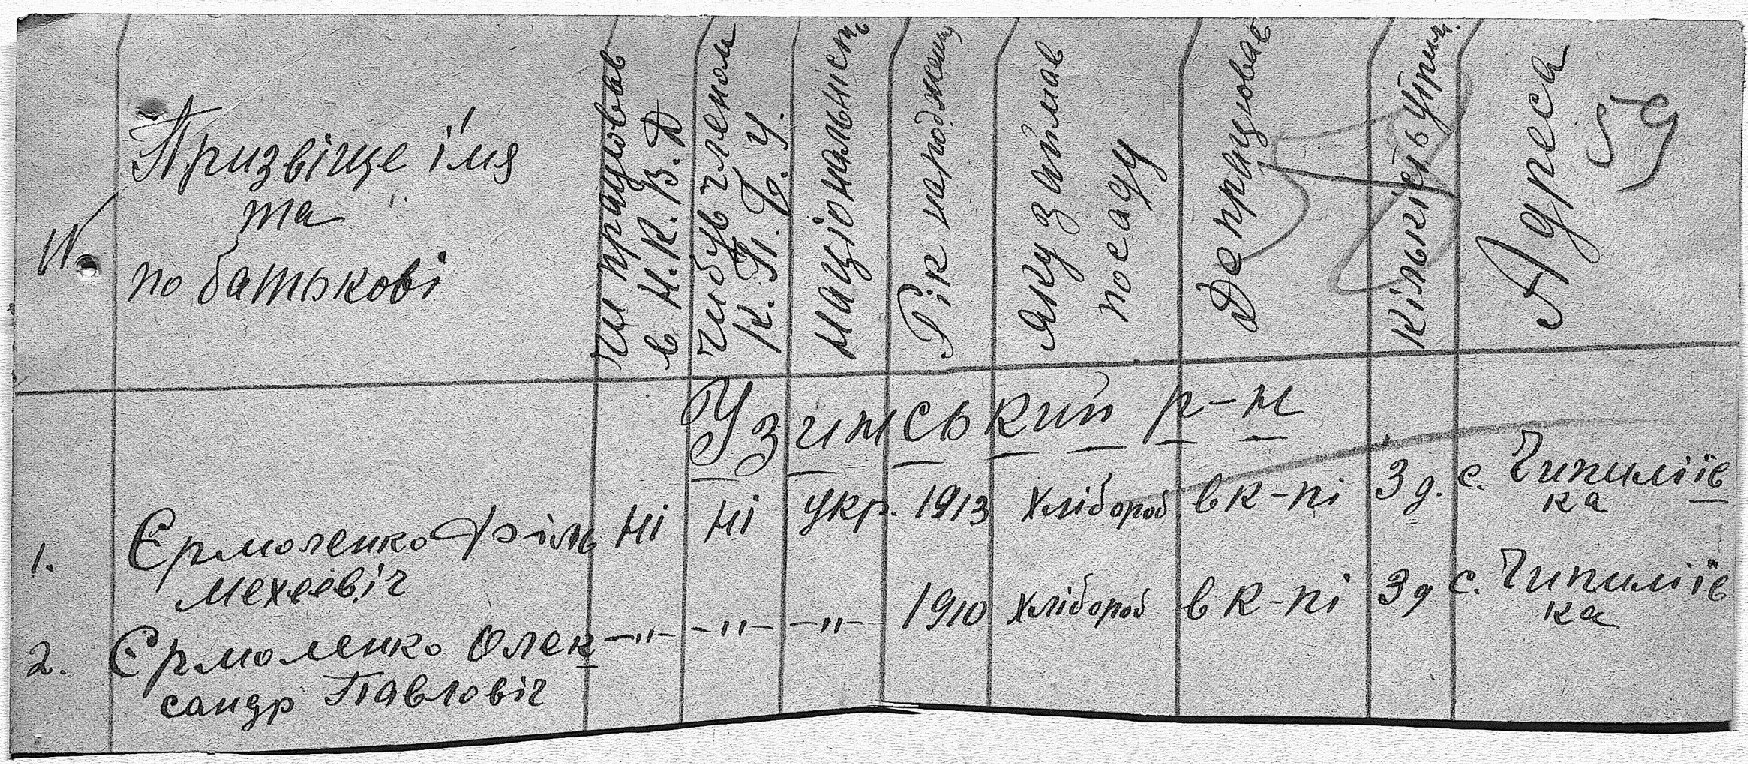 N
Призвіще ім'я
та
по батькові
Чи працював
в Н.К.В.Д
Чи був членом
К.П.б.У.
Національність
Рік народження
Яку займав
посаду
Де працював
Кількість утрим.
Адреса
59
Узинський р-н
1. Єрмоленко Філь Ні Ні укр. 1913 хлібороб в к-пі 3 д. с. Чипиліїв
мехеєвіч ка
2. Єрмоленко Олек -"- -"- -"- 1910 хлібороб в к-пі 3 д с. Чипиліїв
сандр Павловіч ка